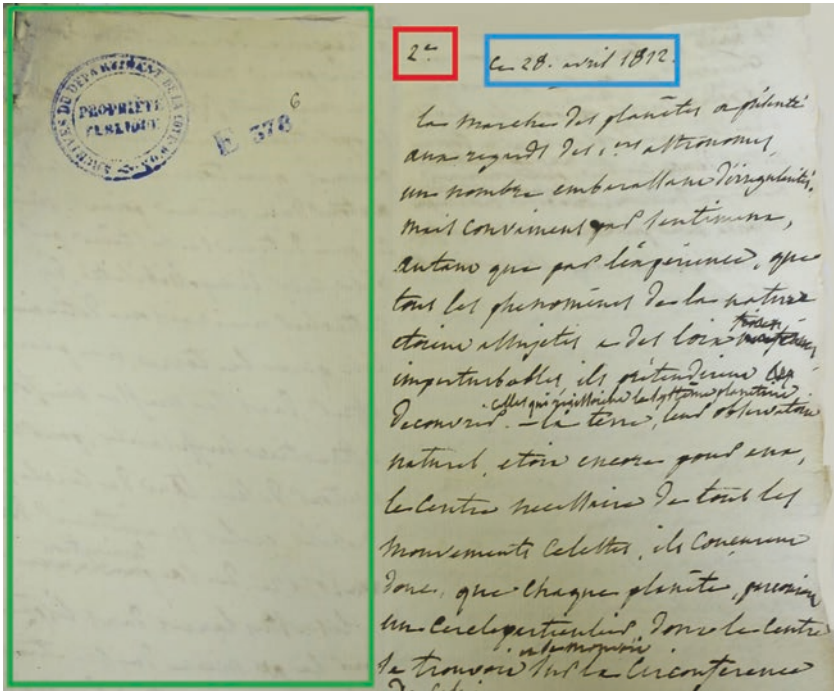 ARCHIVES DU DÉPARTEMENT DE LA CÔTE D'OR
PROPRIÉTÉ
PUBLIQUE
E 378 6
2e.
Le 28. avril 1812.
la marche des planètes a présenté
aux regards des 1ers astronomes,
un nombre embarassant d'irregularités.
mais convaincus par sentiment,
autant que par l'expérience, que
tous les phenomènes de la nature
étoient assujetis a des loix
imperturbables, ils prétendirent
celles qui régissoient le systême planétaire
decouvrir. — la terre, leur observatoire
naturel, etoit encore pour eux,
le centre necessaire de tous les
mouvements celestes, ils conçurent
donc, que chaque planète, parcouroit
un cercle particulier, dont le centre
se trouvoit sur la circonférence